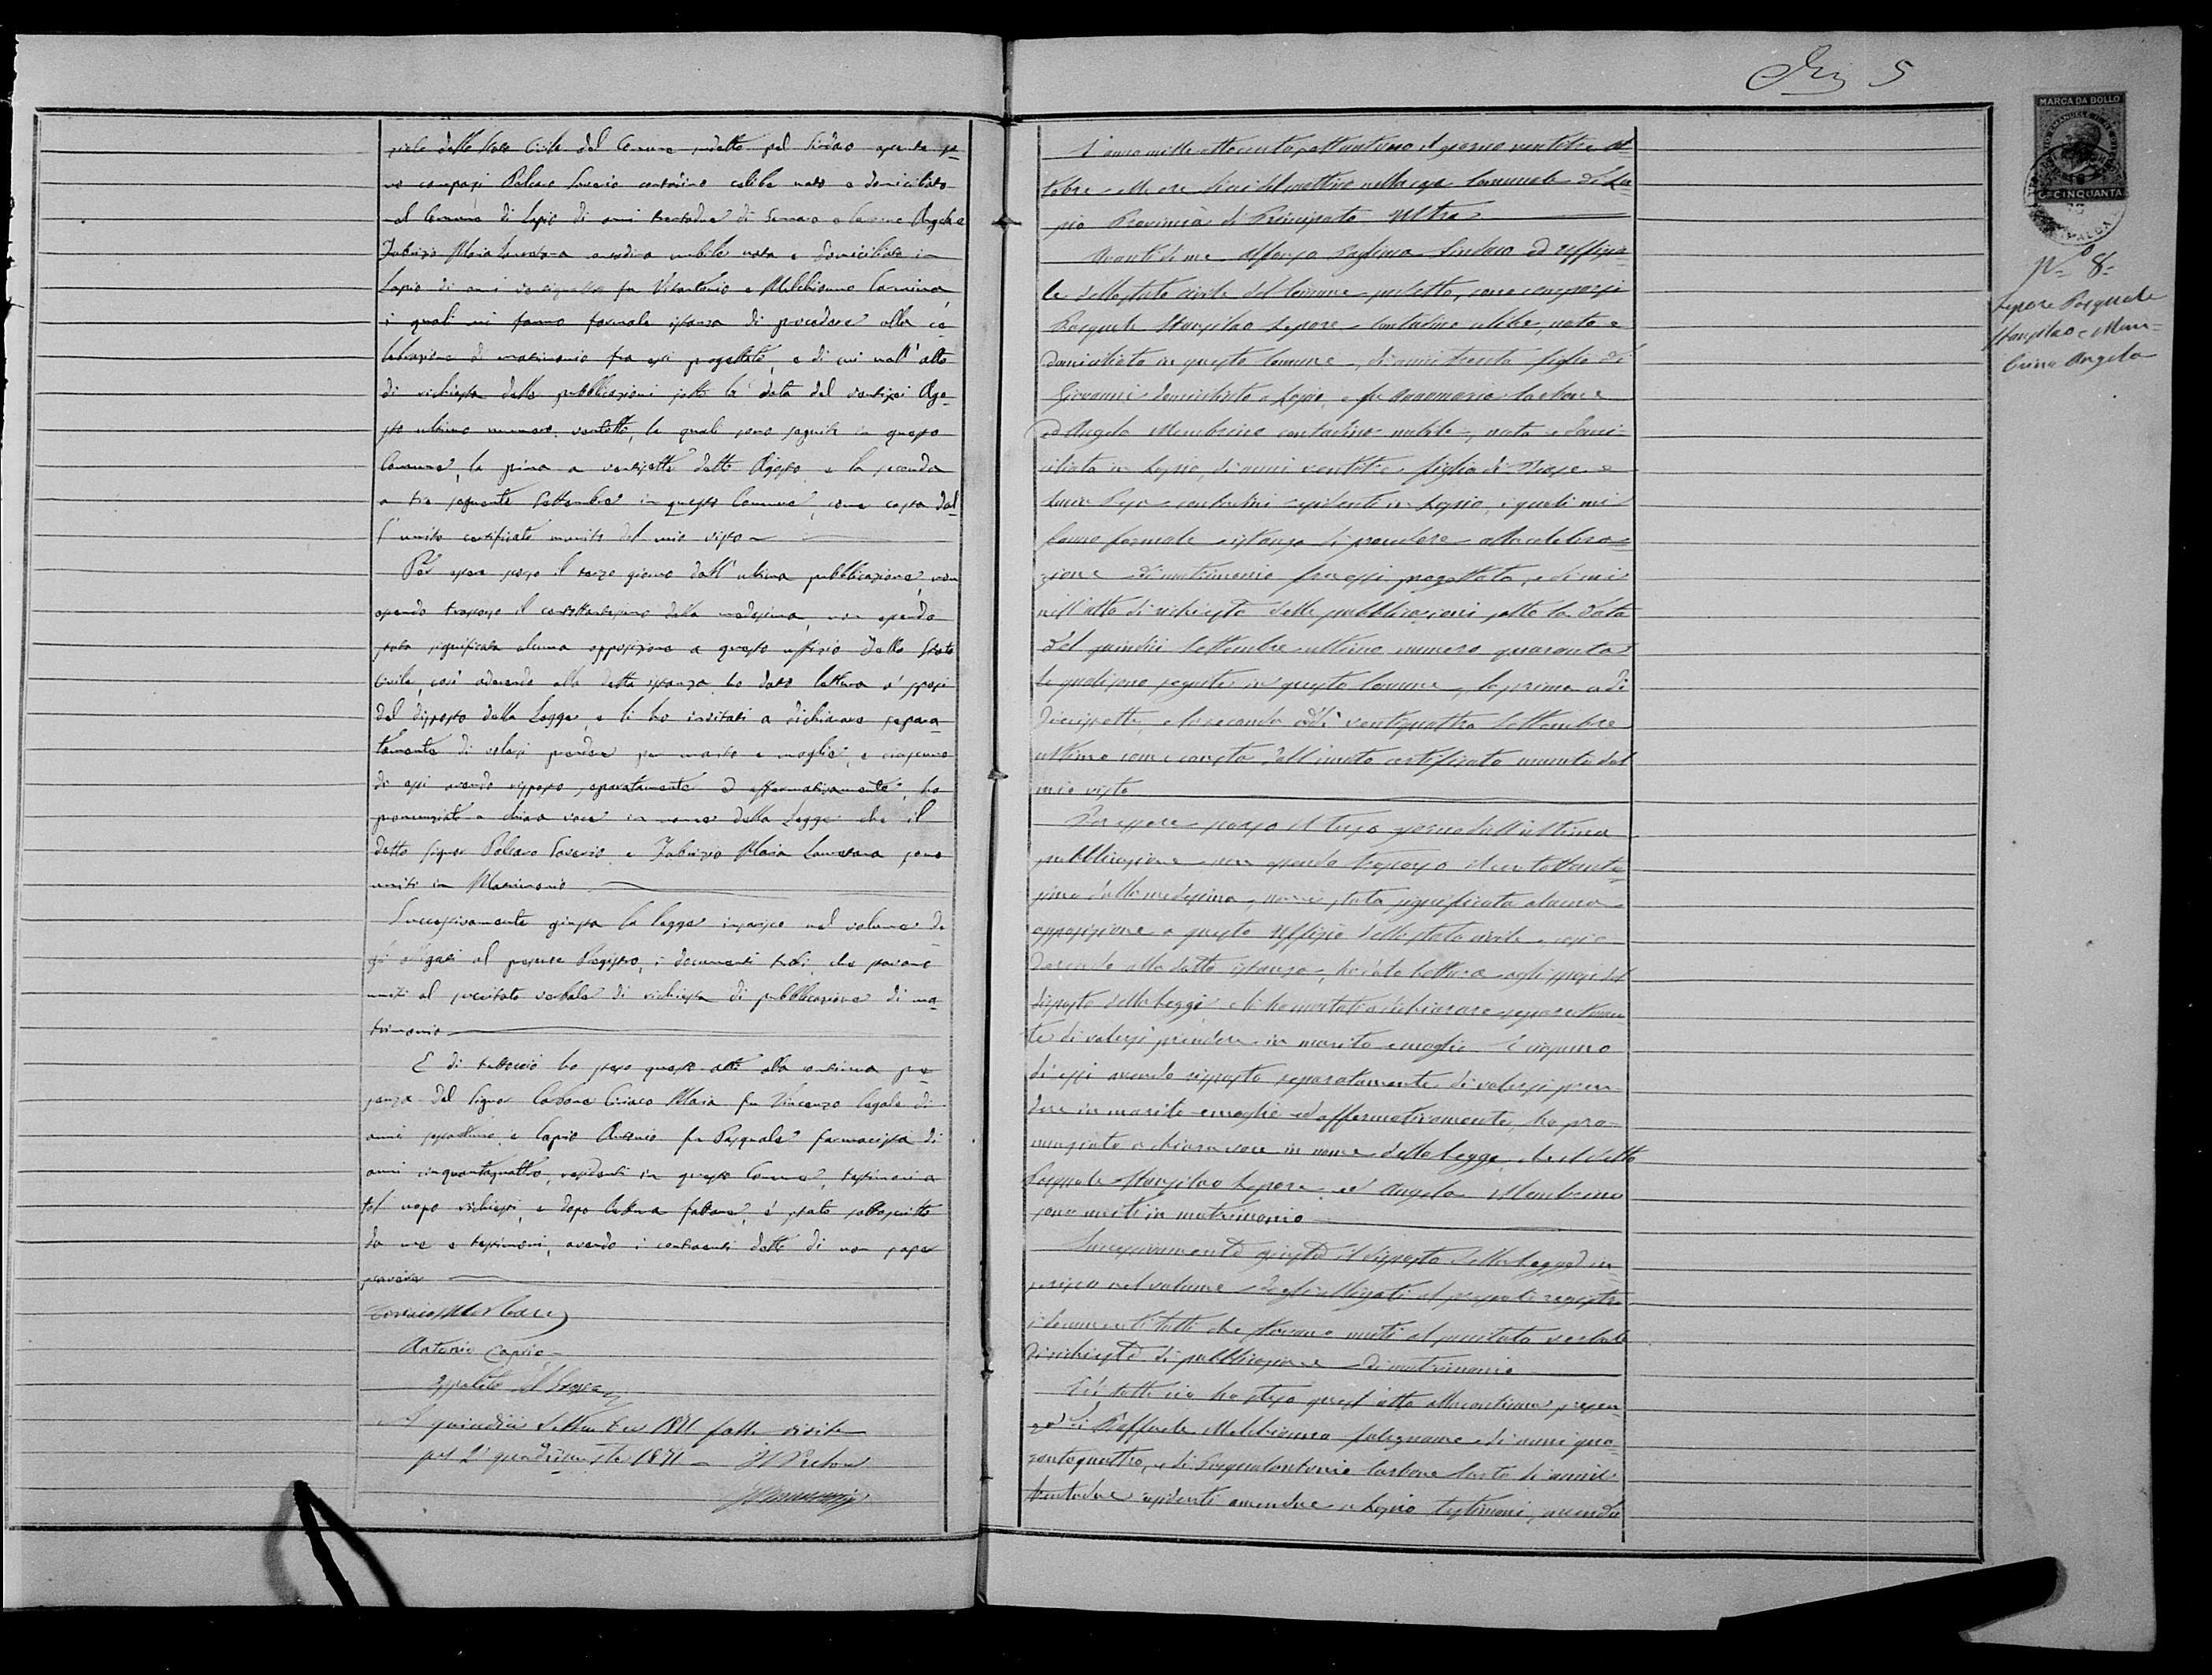 ziale dello Stato Civile del Comune sudetto pel Sindaco assente so-
no comparsi Polcaro Saverio contadino celibe nato e domiciliato
al Comune di Lapio di anni trentadue di Gennaro e Carbone Angela e
Fabrizio Maria Lauretana contadina nubile nata e domiciliata in
Lapio di anni fu Vitantonio e Melchionno Carmina,
i quali mi fanno formale istanza di procedere alla ce-
lebrazione di matrimonio fra essi progettato, e di cui nell'atto
di richiesta delle pubblicazioni sotto la data del ventisei Ago-
sto ultimo numero ventotto, le quali sono seguite in questo
Comune, la prima a ventisette detto Agosto e la seconda
a tre seguente Settembre in questo Comune, come costa dal-
l'unito certificato munito del mio visto
Per essere scorso il terzo giorno dall'ultima pubblicazione, non
essendo trascorso il centottantesimo dalla medesima, non essendo
stata significata alcuna opposizione a questo uffizio dello Stato
Civile, così aderendo alla detta istanza ho dato lettura a' sposi
del disposto della Legge, e li ho invitati a dichiarare separa-
tamente di volersi prendere per marito e moglie, e ciascuno
di essi avendo risposto separatamente ed affermativamente, ho
pronunziato a chiara voce in nome della Legge che il
detto Signor Polcaro Saverio, e Fabrizio Maria Lauretana sono
uniti in Matrimonio
Successivamente giusta la legge inserisco nel volume de-
gli allegati al presente Registro, i documenti tutti che stavano
uniti al precitato verbale di richiesta di pubblicazione di ma-
trimonio
E di tuttociò ho steso questo atto alla continua pre-
senza del Signor Carbone Ciriaco Maria fu Vincenzo legale di
anni sessantuno, e Caprio Antonio fu Pasquale farmacista di
anni cinquantaquattro, residenti in questo Comune, testimoni a
tal uopo richiesti, e dopo lettura fattane, è stato sottoscritto
da me e testimoni, avendo i contraenti detto di non saper
scrivere
Ciriaco Ma Carbone
Antonio Caprio
Ippolito
A quindici Settembre 1871 fatta visita
pel 2° quadrimestre 1871 Il Pretore
5
MARCA DA BOLLO
C. CINQUANTA
N° 8
Lepore Pasquale
Stanislao e Mem-
brino Angela
L'anno mille ottocento settantuno il giorno ventitre Ot-
tobre alle ore dieci del mattino nella casa Comunale di La-
pio Provincia di Principato Ultra
Avanti di me Alfonso Sindaco ed Uffizia-
le dello stato civile del Comune sudetto, sono comparsi
Pasquale Stanislao Lepore contadino celibe nato e
domiciliato in questo Comune, di anni trenta figlio di
Giovanni domiciliato a Lapio, e fu Annamaria Carbone
ed Angela Membrino contadina nubile, nata e domi-
ciliata in Lapio, di anni ventitre figlia di Biagio e
contadini residenti in Lapio, i quali mi
fanno formale istanza di procedere alla celebra-
zione di matrimonio fra essi progettato, e di cui
nell'atto di richiesta delle pubblicazioni sotto la data
del quindici Settembre ultimo numero quaranta
le quali sono seguite in questo Comune, la prima a dì
diecisette, e la seconda a dì ventiquattro Settembre
ultimo come consta dall'unito certificato munito del
mio visto
Per essere scorso il terzo giorno dall'ultima
pubblicazione non essendo trascorso il centottante-
simo dalla medesima, non è stata significata alcuna
opposizione a questo Uffizio dello stato civile, così a-
derendo alla detta istanza, ho dato lettura agli sposi del
disposto della Legge, e li ho invitati a dichiarare separatamen-
te di volersi prendere in marito e moglie E ciascuno
di essi avendo risposto separatamente di volersi pren-
dere in marito e moglie ed affermativamente, ho pro-
nunziato a chiara voce in nome della Legge, che il detto
Pasquale Stanislao Lepore ed Angela Membrino
sono uniti in matrimonio
Successivamente giusta il disposto della Legge in-
serisco nel volume degli allegati al presente registro
i documenti tutti che stavano uniti al precitato verbale
di richiesta di pubblicazione di matrimonio
Di tutto ciò ho steso quest'atto alla continua presen-
za di Raffaele Melchionna falegname di anni qua-
rantaquattro, e di Pasqualantonio Carbone Sarto di anni
trentadue residenti amendue a Lapio testimoni, avendo